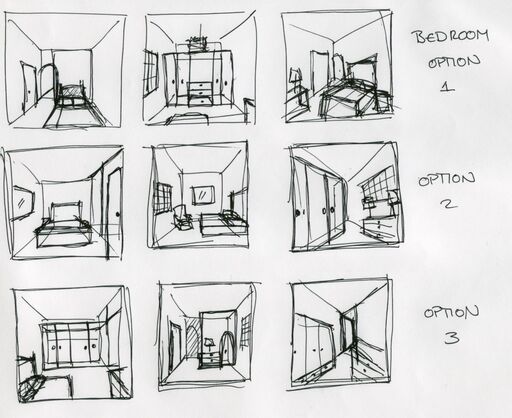 BEDROOM
OPTION
1
OPTION
2
OPTION
3